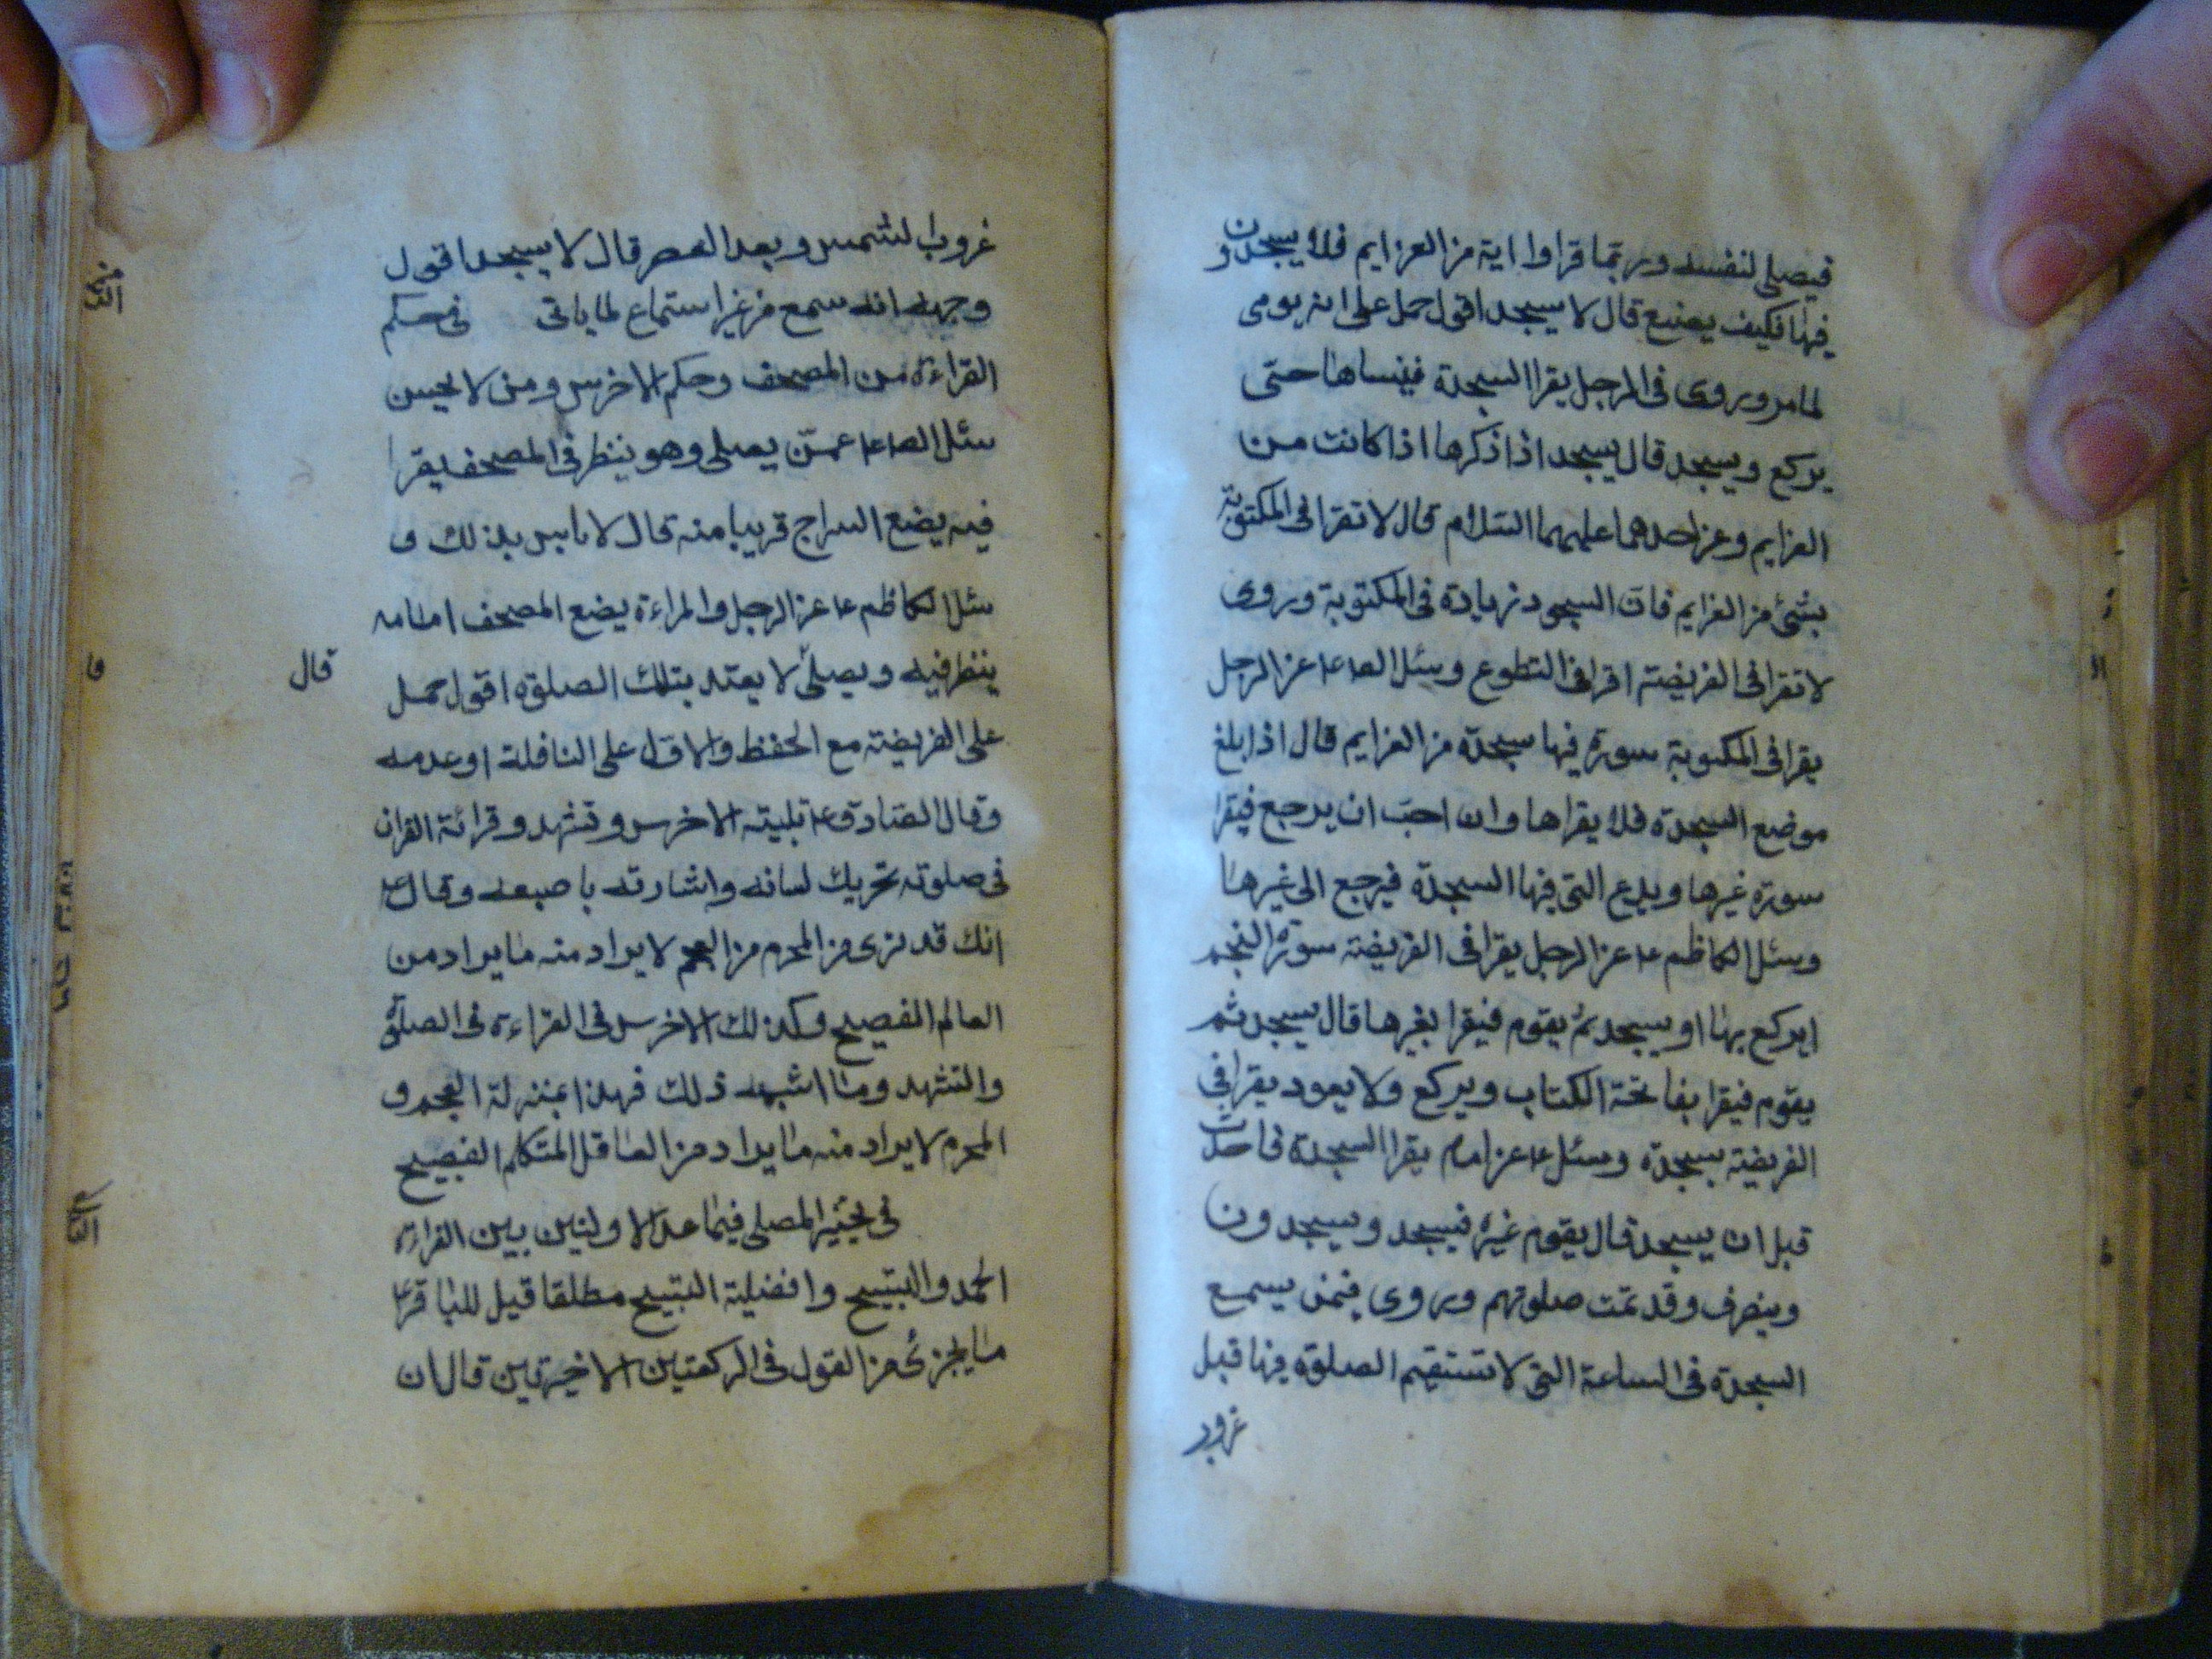 فيصلي لنفسه وربما قراوا اية من العزايم فلا يسجدون
فيها فكيف يصنع قال لا يسجد اقول حمل على انه يومى
لما مر وروى في الرجل يقرا السجدة فينساها حتى
يركع ويسجد قال يسجد اذا ذكرها اذا كانت من
العزايم وعن احدهما عليهما السلام قال لا تقرا في المكتوبة
بشئ من العزايم فان السجود زيادة في المكتوبة وروى
لا تقرا في الفريضة اقرا في التطوع وسئل الصا ع عن الرجل
يقرا في المكتوبة سورة فيها سجدة من العزايم قال اذا بلغ
موضع السجدة فلا يقراها وان احب ان يرجع فيقرا
سورة غيرها ويدع التي فيها السجدة فيرجع الى غيرها
وسئل الكاظم ع عن الرجل يقرا في الفريضة سورة النجم
ايركع بها او يسجد ثم يقوم فيقرا بغيرها قال يسجد ثم
يقوم فيقرا بفاتحة الكتاب ويركع ولا يعود يقرا في
الفريضة بسجدة وسئل ع عن امام يقرا السجدة فاحدث
قبل ان يسجد قال يقوم غيره فيسجد ويسجدون
وينصرف وقد تمت صلوتهم وروى فيمن يسمع
السجدة في الساعة التي لا تستقيم الصلوة فيها قبل
غروب
غروب الشمس وبعد العصر قال لا يسجد اقول
وجهه انه سمع من غير استماع لما ياتى في حكم
القراءة من المصحف وحكم الاخرس ومن لا يحسن
سئل الصا ع عمن يصلى وهو ينظر في المصحف يقرا
فيه يضع السراج قريبا منه قال لا باس بذلك و
سئل الكاظم ع عن الرجل والمراءة يضع المصحف امامه
ينظر فيه ويصلى لا يعتد بتلك الصلوة اقول حمل
قال
على الفريضة مع الحفظ والاول على النافلة او عدمه
وقال الصادق ع تلبية الاخرس وتشهد وقرائة القران
في صلوته تحريك لسانه واشارته باصبعه وقال ع
انك قد ترى من المحرم من العجم لا يراد منه ما يراد من
العالم الفصيح وكذلك الاخرس في القراءة في الصلوة
والتشهد وما اشبه ذلك فهذا بمنزلة العجم و
المحرم لا يراد منه ما يراد من العاقل المتكلم الفصيح
في تخيير المصلى فيما عدا الاولتين بين القراءة
الحمد والتسبيح وافضلية التسبيح مطلقا قيل للباقر ع
ما يجزئ من القول في الركعتين الاخيرتين قال ان